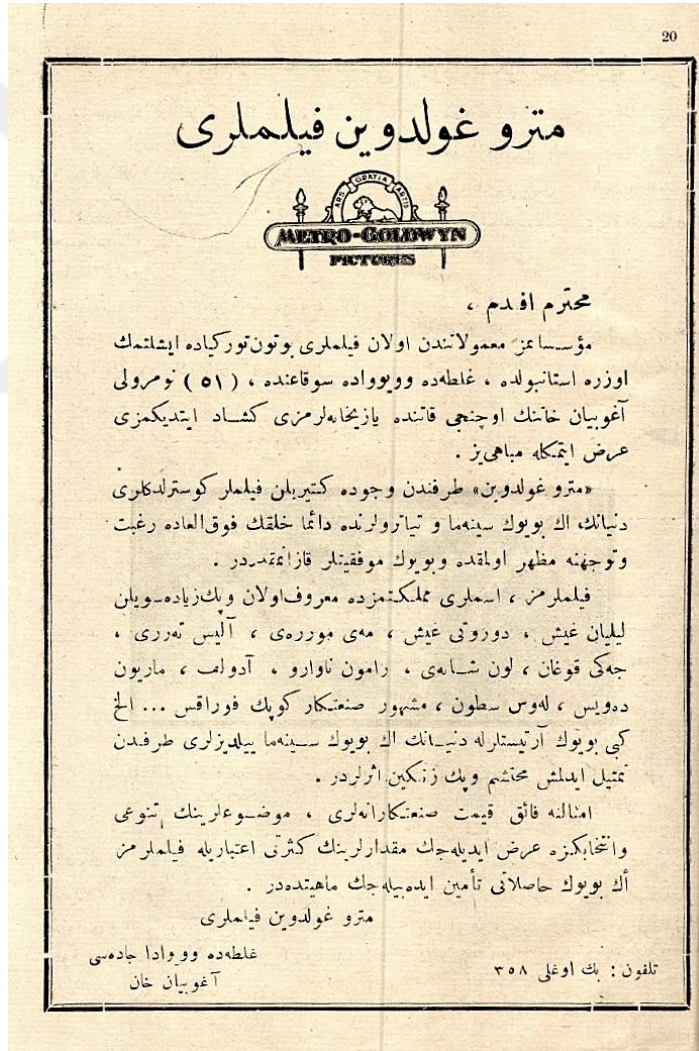 20
مترو غولدوین فیلملری
ARS GRATIA ARTIS
METRO-GOLDWYN
PICTURES
محترم افندم ،
مؤسسه‌مز معمولاتندن اولان فیلملری بوتون تورکیاده ایشلتمك
اوزره استانبولده ، غلطه‌ده وویواده سوقاعنده ، ( ٥١ ) نومرولی
آغوبیان خاننك اوچنجی قاتنده یازیخانه‌لرمزی کشاد ایتدیکمزی
عرض ایتمکله مباهی‌یز .
«مترو غولدوین» طرفندن وجوده کتیریلن فیلملر کوسترلدکلری
دنیانك اك بویوك سینه‌ما و تیاترولرنده دائما خلقك فوق‌العاده رغبت
وتوجهنه مظهر اولمقده وبویوك موفقیتلر قازانمقده‌در .
فیلملرمز ، اسملری مملکتمزده معروف‌اولان وپك‌زیاده‌سویلن
لیلیان غیش ، دوروتی غیش ، مه‌ی موررەی ، آلیس ته‌رری ،
جه‌کی قوغان ، لون شانه‌ی ، رامون ناوارو ، آدولف ، ماریون
ده‌ویس ، له‌وس سطون ، مشهور صنعتکار کوپك فوراقس ... الخ
کبی بویوك آرتیستلرله دنیانك اك بویوك سینه‌ما ییلدیزلری طرفندن
تمثیل ایدلمش محتشم وپك زنکین اثرلردر .
امثالنه فائق قیمت صنعتکارانه‌لری ، موضوعلرینك تنوعی
وانتخابکزه عرض ایدیله‌جك مقدارلرینك کثرتی اعتباریله فیلملرمز
أك بویوك حاصلاتی تأمین ایده‌بیله‌جك ماهیتده‌در .
مترو غولدوین فیلملری
غلطه‌ده وویوادا جاده‌سی
آغوبیان خان
تلفون : بك اوغلی ٣٥٨